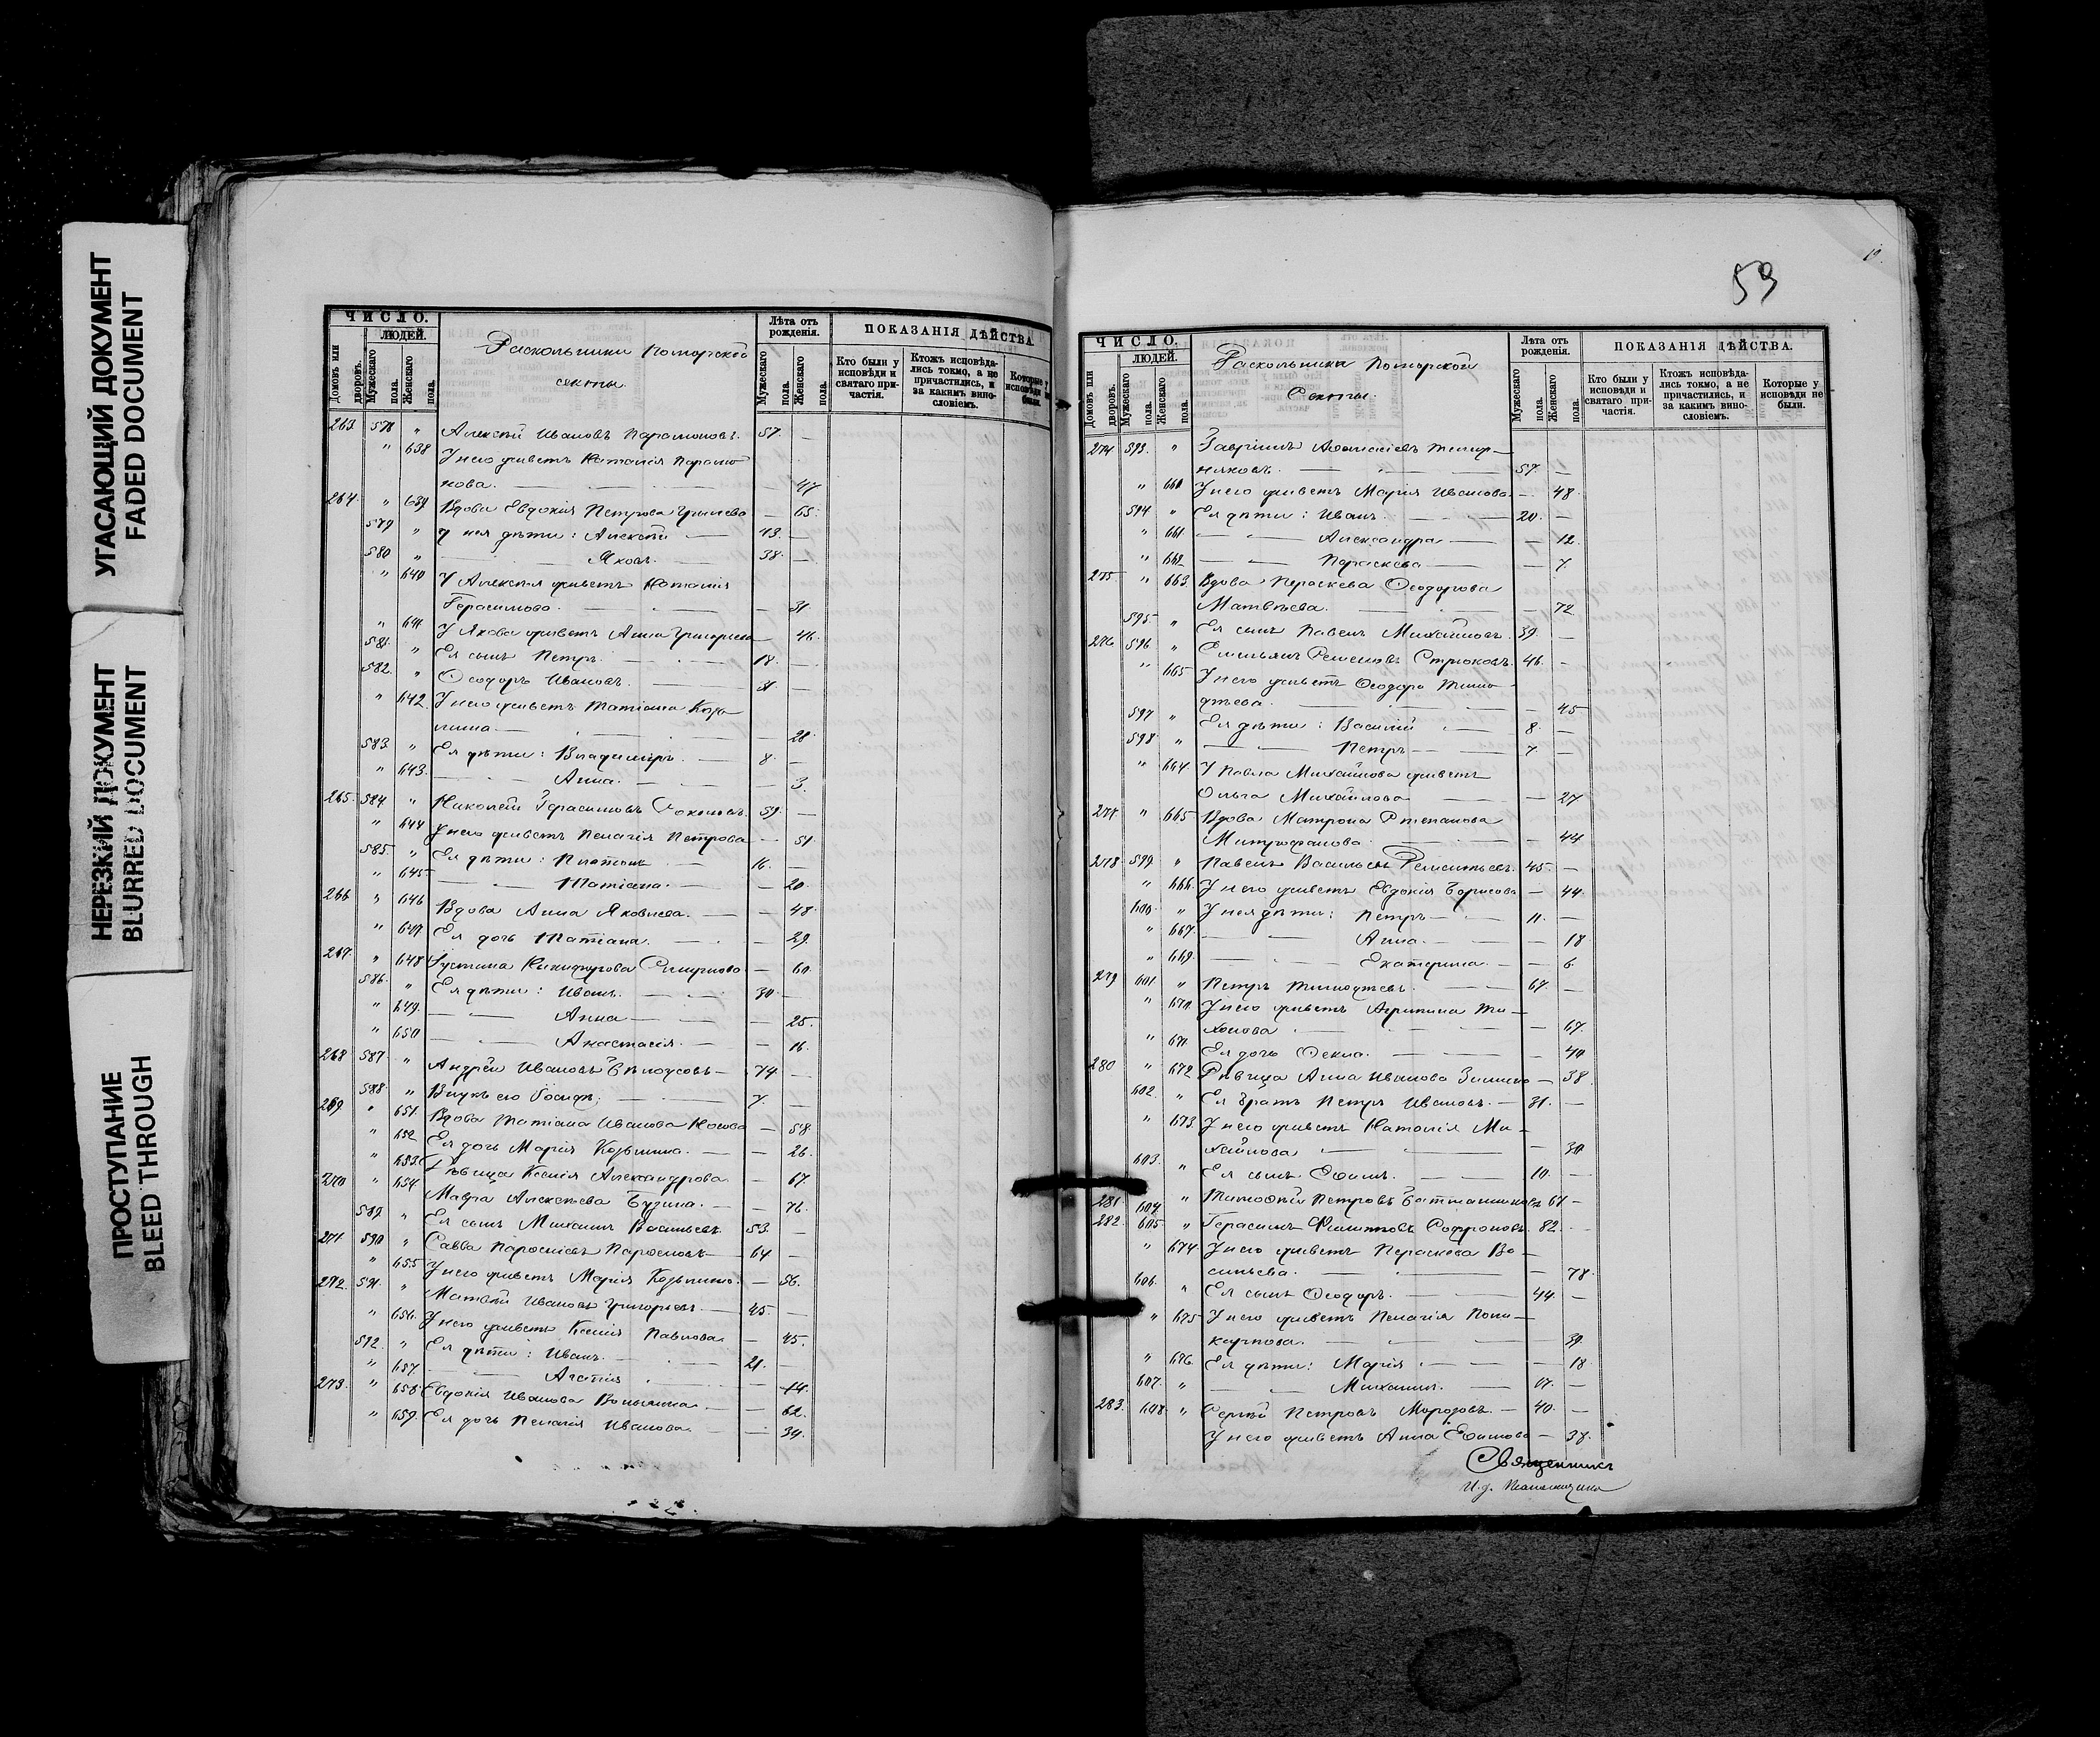 УГАСАЮЩИЙ ДОКУМЕНТ
FADED DOCUMENT
НЕРЕЗКИЙ ДОКУМЕНТ
BLURRED DOCUMENT
ПРОСТУПАНИЕ
BLEED THROUGH
ЧИСЛО.
ЛЮДЕЙ.
Домовъ или дворовъ.
Мужескаго пола.
Женскаго пола.
Раскольники Поморской
секты.
Лѣта отъ рожденія.
Мужескаго пола.
Женскаго пола.
ПОКАЗАНІЯ ДѢЙСТВА.
Кто были у исповѣди и святаго причастія.
Ктожъ исповѣдались токмо, а не причастились, и за какимъ винословіемъ.
Которые у исповѣди не были.
263 578 " Алексѣй Ивановъ Парамоновъ. 57. —
" 638 У него живетъ Наталія Парамо-
нова. — 47
264. " 639 Вдова Евдокія Петрова — 65.
579 " У нея дѣти: Алексѣй 43. —
580 " Яковъ. 38. —
" 640 У Алексѣя живетъ Наталія
Герасимова. — 31.
" 641 У Якова живетъ Анна Григорьева 46.
581. " Ея сынъ Петръ. 18. —
582. " Ѳеодоръ Ивановъ. 31. —
" 642. У него живетъ Татіана Козь-
мина — 28.
583. " Ея дѣти: Владиміръ. 8. —
" 643. Анна. 3.
265. 584. " Николай Герасимовъ 59. —
" 644 У него живетъ Пелагія Петрова — 51.
585. " Ея дѣти: Платонъ 16. —
" 645 Татіана. — 20.
266 " 646 Вдова Анна Яковлева. — 48.
" 647 Ея дочь Татіана. — 29.
267. " 648 Устина Никифорова Смирнова — 60.
586. " Ея дѣти: Иванъ. 30. —
" 649. Анна — 25.
" 650 Анастасія. — 16.
268 587. " Андрей Ивановъ Бѣлоусовъ — 74. —
588. " Внукъ его 7. —
269 " 651. Вдова Татіана Иванова Носова — 58.
" 652 Ея дочь Марія Козьмина. — 26.
" 653. Дѣвица Ксенія Александрова — 67
270 " 654 Мавра Алексѣева — 76.
589. " Ея сынъ Михаилъ Васильевъ 53. —
271 590 " Савва 64 —
" 655 У него живетъ Марія Козьмина. — 56.
272. 591. " Матвѣй Ивановъ Григорьевъ. 45 —
" 656. У него живетъ Ксенія Павлова — 45.
592. " Ея дѣти: Иванъ. 21. —
" 657. Агафія — 14.
273. " 658. Евдокія Иванова — 62.
" 659. Ея дочь Пелагія Иванова. — 34.
59
ЧИСЛО.
ЛЮДЕЙ.
Домовъ или дворовъ.
Мужескаго пола.
Женскаго пола.
Раскольники Поморской
Секты.
Лѣта отъ рожденія.
Мужескаго пола.
Женскаго пола.
ПОКАЗАНІЯ ДѢЙСТВА.
Кто были у исповѣди и святаго причастія.
Ктожъ исповѣдались токмо, а не причастились, и за какимъ винословіемъ.
Которые у исповѣди не были.
274 593. " Гавріилъ Аѳанасіевъ
57. —
" 660 У него живетъ Марія Иванова — 48.
594 " Ея дѣти: Иванъ. 20. —
" 661. Александра — 12.
" 662 Параскева — 7.
275 " 663. Вдова Параскева Ѳеодорова
Матвѣева. — 72.
595 " Ея сынъ Павелъ Михайловъ. 39. —
276 596 " Емельянъ Семеновъ 46. —
" 665 У него живетъ Ѳеодора Тимо-
фѣева. — 45
597 " Ея дѣти: Василій 8. —
598 " Петръ 7. —
" 664. У Павла Михайлова живетъ
Ольга Михайлова — 27
277 " 665 Вдова Матрона Степанова
Митрофанова. — 44
278 599 " Павелъ Васильевъ 45. —
" 666. У него живетъ Евдокія Борисова — 44.
600. " У нея дѣти: Петръ 11. —
" 667. Анна. — 18
" 669. Екатерина. — 6.
279 601 " Петръ Тимофѣевъ. 67. —
" 670 У него живетъ Агрипина Ти-
хонова — 67.
" 671. Ея дочь Ѳекла. — 40
280 " 672 Дѣвица Анна Иванова Зимина — 38.
602. " Ея братъ Петръ Ивановъ. 31. —
" 673. У него живетъ Наталія Ми-
хайлова — 30
603. " Ея сынъ Ефимъ. 10. —
281. 604 " Тимофѣй Петровъ 61 —
282. 605 " Герасимъ Филиповъ Софроновъ. 82. —
" 674. У него живетъ Параскева Ва-
сильева. — 78.
606. " Ея сынъ Ѳеодоръ. 44. —
" 675 У него живетъ Пелагія Поли-
карпова. — 39
" 676. Ея дѣти: Марія — 18.
607. " Михаилъ. 17. —
283. 608. " Сергѣй Петровъ Морозовъ. — 40. —
У него живетъ Анна Ефимова — 38.
Священникъ
И. д. Псаломщика